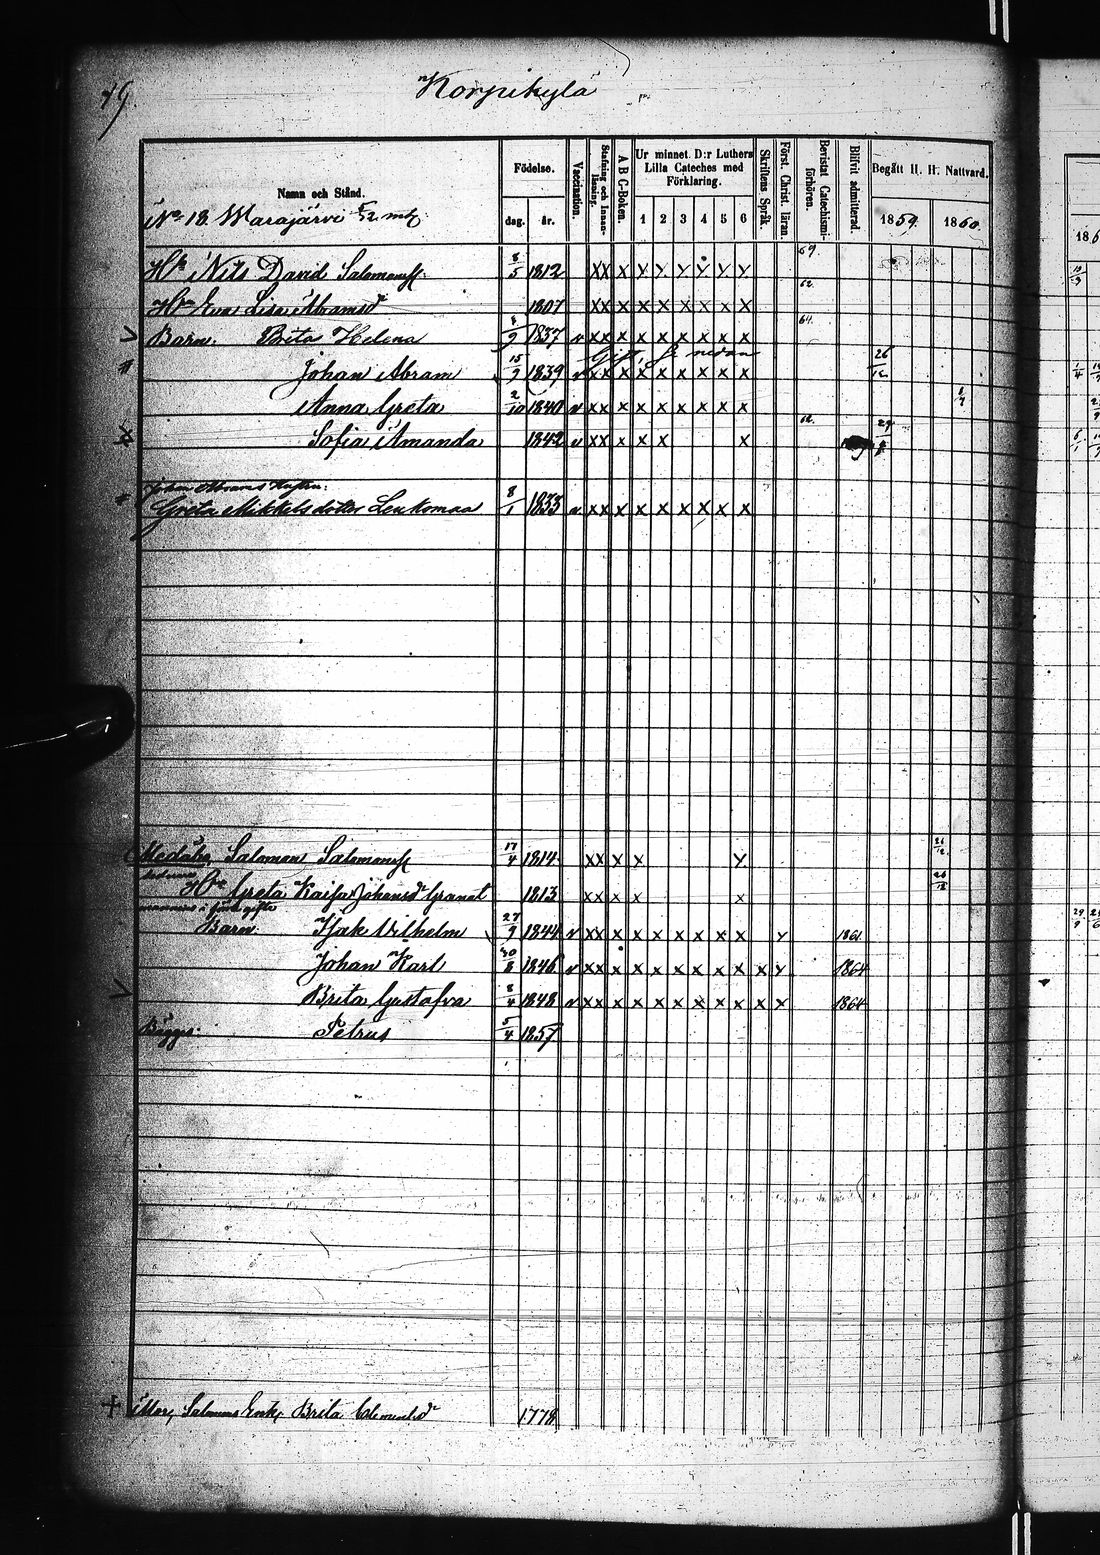 79.
Korpikylä
Namn och Stånd. Födelse. Vaccination. Stafning och Innanläsning. A B C-Boken. Ur minnet D:r Luthers Lilla Cateches med Förklaring. Skriftens Språk. Först. Christ. läran. Bevistat Catechismiförhören. Blifvit admitterad Begått H. H. Nattvard.
No 18. Warajärvi dag. år. 1 2 3 4 5 6 1859. 1860.
Nils David Salomonss: 8/5 1812 XX X Y Y Y Y Y Y 69.
Eva Lisa Abramsd 1807 XX X X X X X X X 62.
Barn: Brita Helena 8/9 1837 v XX X X X X X X X 64.
Gift, se nedan
Johan Abram 15/9 1839 v XX X X X X X X X 26/12
Anna Greta 2/10 1840 v XX X X X X X X X
Sofia Amanda 1842 v XX X X X X 62. 29
Johan Abrams Hustru:
Greta Mikkelsdotter Leukomaa 8/1 1833 v XX X X X X X X X
Salomon Salomonss 17/4 1814 XX X X Y 26/12
Greta Kaisa Johansd Granat 1813 XX X X X 26/12
Barn: Isak Vilhelm 27/9 1844 v XX X X X X X X X Y 1861.
Johan Karl 1846 v XX X X X X X X X X Y 1864
Brita Gustafva 8/4 1848 v XX X X X X X X X X X 1864
Petrus 5/4 1857
+ Mor, Salomons Enk, Brita Clementsd 1778